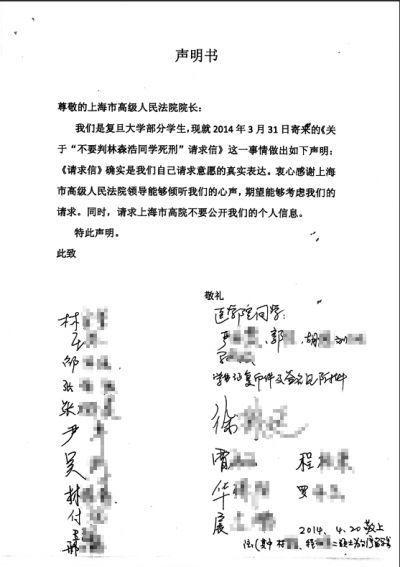 声明书
尊敬的上海市高级人民法院院长：
我们是复旦大学部分学生，现就 2014 年 3 月 31 日寄来的《关
于“不要判林森浩同学死刑”请求信》这一事情做出如下声明：
《请求信》确实是我们自己请求意愿的真实表达。衷心感谢上海
市高级人民法院领导能够倾听我们的心声，期望能够考虑我们的
请求。同时，请求上海市高院不要公开我们的个人信息。
特此声明。
此致
敬礼
林
王
邹
张
张
尹
吴
林
付
医学院同学：
郭 胡 刘
学生证复印件及签名见附件
徐
曹 程
华 罗
展
2014. 4. 20 敬上